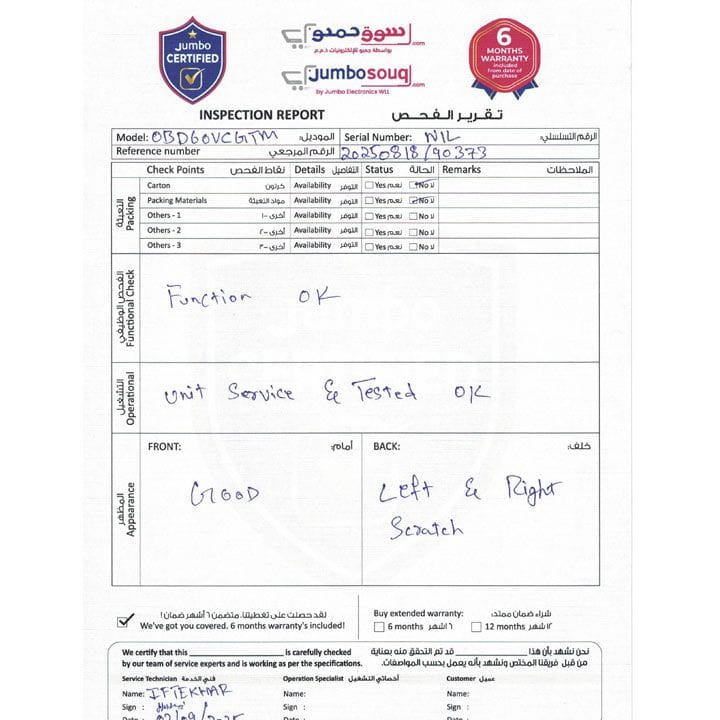 Jumbo
CERTIFIED
سوق جمبو.com
بواسطة جمبو للإلكترونيات ذ.م.م
jumbosouq.com
by Jumbo Electronics WLL
6
MONTHS
WARRANTY
included
from date of
purchase
INSPECTION REPORT تقرير الفحص
Model: OBD60VCGTM الموديل: Serial Number: NIL الرقم التسلسلي:
Reference number الرقم المرجعي 20250818/90373
Check Points نقاط الفحص Details التفاصيل Status الحالة Remarks الملاحظات
التعبئة Packing
Carton كرتون Availability التوفر Yes نعم No لا
Packing Materials مواد التعبئة Availability التوفر Yes نعم No لا
Others - 1 أخرى -١ Availability التوفر Yes نعم No لا
Others - 2 أخرى -٢ Availability التوفر Yes نعم No لا
Others - 3 أخرى -٣ Availability التوفر Yes نعم No لا
الفحص الوظيفي Functional Check
Function OK
التشغيل Operational
Unit Service & Tested OK
المظهر Appearance
FRONT: أمام: BACK: خلف:
GOOD
Left & Right
Scratch
لقد حصلت على تغطيتنا، متضمن ٦ أشهر ضمان!
We've got you covered. 6 months warranty's included!
Buy extended warranty: شراء ضمان ممتد:
6 months ٦ اشهر 12 months ١٢ شهر
We certify that this is carefully checked
by our team of service experts and is working as per the specifications.
نحن نشهد بأن هذا قد تم التحقق منه بعناية
من قبل فريقنا المختص ونشهد بأنه يعمل بحسب المواصفات.
Service Technician فني الخدمة Operation Specialist أخصائي التشغيل Customer عميل
Name: IFTEKHAR Name: Name:
Sign : Sign : Sign :